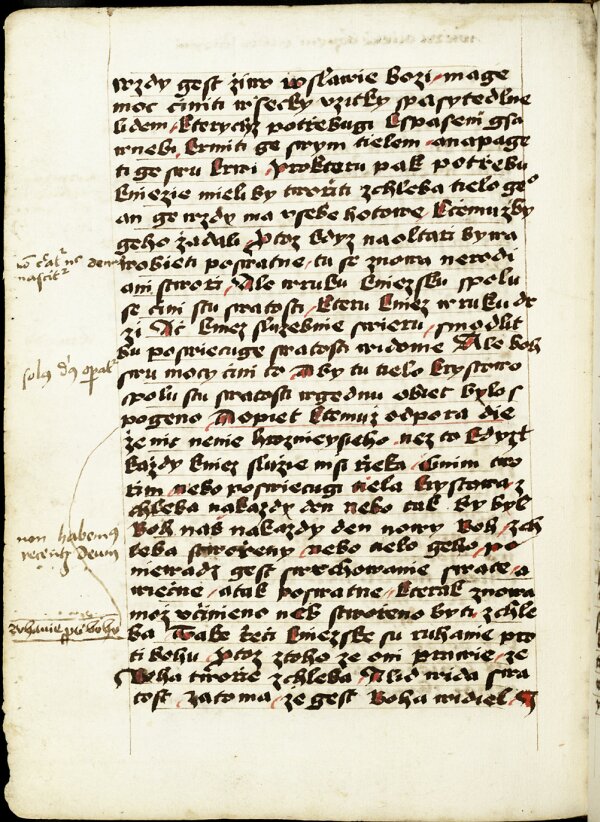 wzdy gest ziw w slawie bozi, mage
moc ciniti wsecky vzitky spasytedlne
lidem, kterychz potrebugi k spaseni gsa
w nebi, krmiti ge swym tielem, a napage
ti ge swu krwi, Prokteru pak potrebu
kniezie mieli by tworiti z chleba tielo geo
an ge wzdy ma v sebe hotowe, k tomuz by
geho zadali, Protoz kdyz na oltari bywa
w obieti poswatne, tu se znowa nerodi
ani stwori, Ale w ruku kniezsku spolu
se cini s tu swatosti, kteru kniez w ruku dr
zi, Ac kniez sluzebnie swieru, s modlit
bu poswiecuge swatosti widome, Ale boh
swu mocy cini to, Aby tu tielo krystowo
spolu s tu swatosti w gednu obiet bylo s
pogeno, A opiet k temuz odpora die
ze nic nenie hroznieysieho, nez to kdyz
kazdy kniez sluzie msi rieka, cinim two
rim, nebo poswiecugi tiela krystowa z
chleba na kazdy den nebo tak by byl
Boh nas na kazdy den nowy Boh, z ch
leba stworeny, nebo tielo geho, po
niewadz gest swrchowanie swate, a
wiecne, a tak poswatne, kterak znowa
moz vcinieno neb stworeno byti, z chle
ba, Take reci kniezske su ruhanie pro
ti bohu, Protoz z toho ze oni prawie, ze
Boha tworie z chleba, A lid wida swa
tost, za to ma, ze gest Boha widiel,
nascitr
solus ds operatr
non habemus
recentem deum
Ruhanie pti bohu